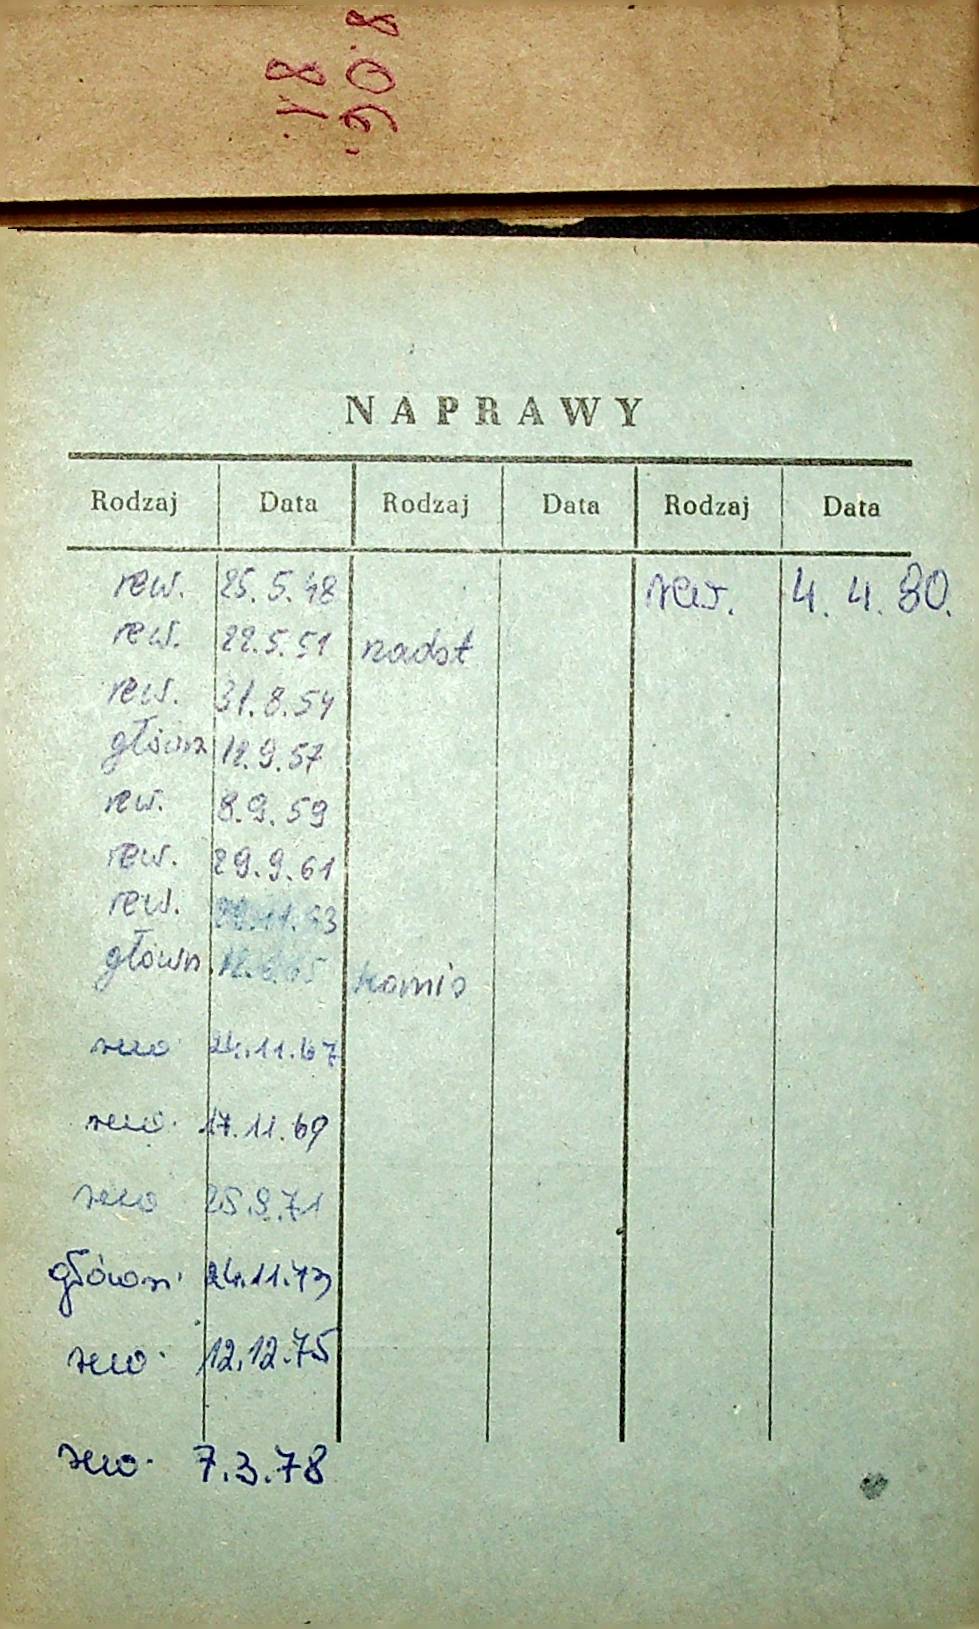 NAPRAWY
Rodzaj Data Rodzaj Data Rodzaj Data
rew. 25.5.48 rew. 4.4.80.
rew. 22.5.51 nadst
rew. 31.8.54
główn 12.9.57
rew. 8.9.59
rew. 29.9.61
rew.
główn. komis
rew 24.11.67
rew. 17.11.69
rew 25.9.71
główn. 24.11.73
rew. 12.12.75
rew. 7.3.78